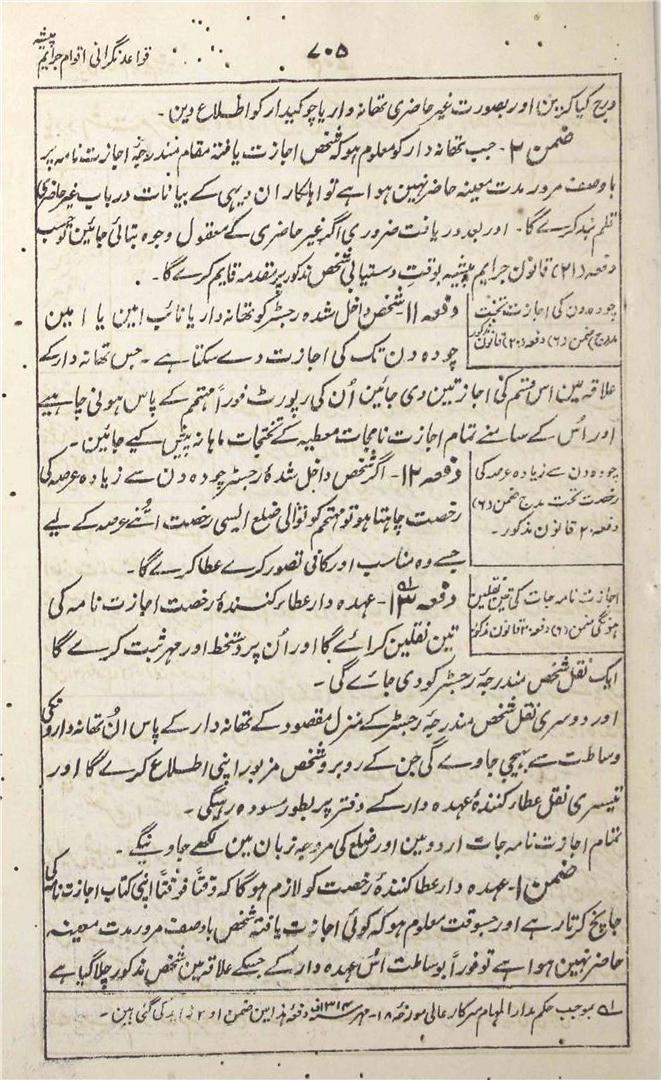 ۷۰۵
قواعد نگرانی اقوام جرایم پیشہ
درج کیا کرین اور بصورت غیر حاضری تھانہ دار یا چوکیدار کو اطلاع دین ۔
ضمن ۲ ۔ جب تھانہ دار کو معلوم ہو کہ شخص اجازت یافتہ مقام مندرجۂ اجازت نامہ پر
باوصف مرور مدت معینہ حاضر نہین ہوا ہے تو اہلکاران دیہی کے بیانات درباب غیر حاضری
قلم بند کرے گا ۔ اور بعد دریافت ضروری اگر غیر حاضری کے معقول وجوہ نہ بتائی جائین تو حسب
دفعہ (۲۱) قانون جرایم پیشہ بوقت دستیابی شخص مذکور پر مقدمہ قایم کرے گا ۔
چودہ دن کی اجازت تحت
مدرج ضمن (۶) دفعہ (۲۰) قانون مذکور
دفعہ ۱۱ شخص داخل شدہ رجسٹر کو تھانہ دار یا نائب امین یا امین
چودہ دن تک کی اجازت دے سکتا ہے ۔ جس تھانہ دار کے
علاقہ مین اس قسم کی اجازتین دی جائین اُن کی رپورٹ فوراً مہتمم کے پاس ہونی چاہیے
اور اُس کے سامنے تمام اجازت نامجات معطیہ کے تختجات ماہانہ پیش کیے جائین ۔
چودہ دن سے زیادہ عرصہ کی
رخصت تحت مدرج ضمن (۶)
دفعہ ۲۰ قانون مذکور ۔
دفعہ ۱۲ ۔ اگر شخص داخل شدۂ رجسٹر چودہ دن سے زیادہ عرصہ کی
رخصت چاہتا ہو تو مہتمم کوتوالی ضلع ایسی رخصت اُتنے عرصہ کے لیے
جسے وہ مناسب اور کافی تصور کرے عطا کرے گا ۔
اجازت نامہ جات کی تین نقلین
ہونگی ضمن (۶) دفعہ ۲۰ قانون مذکور
دفعہ ۱۳ ۔ عہدہ دار عطا کنندۂ رخصت اجازت نامہ کی
تین نقلین کرائے گا اور اُن پر دستخط اور مہر ثبت کرے گا
ایک نقل شخص مندرجۂ رجسٹر کو دی جائے گی ۔
اور دوسری نقل شخص مندرجۂ رجسٹر کے منزل مقصود کے تھانہ دار کے پاس اُن تھانہ دارونکی
وساطت سے بھیجی جاوے گی جن کے روبرو شخص مزبور اپنی اطلاع کرے گا اور
تیسری نقل عطا کنندۂ عہدہ دار کے دفتر پر بطور مسودہ رہیگی ۔
تمام اجازت نامہ جات اردو مین اور ضلع کی مروجہ زبان مین لکھے جاوینگے ۔
ضمن ۱ ۔ عہدہ دار عطا کنندۂ رخصت کو لازم ہوگا کہ وقتاً فوقتاً اپنی کتاب اجازت نامہ کی
جانچ کرتا رہے اور جسوقت معلوم ہو کہ کوئی اجازت یافتہ شخص باوصف مرور مدت معینہ
حاضر نہین ہوا ہے تو فوراً بوساطت اُس عہدہ دار کے جسکے علاقہ مین شخص مذکور چلا گیا ہے
بموجب حکم مدار المہام سرکار عالی مورخۂ ۱۸ ۔ مہر سنہ ۱۳۱۴ف دفعۂ ہذا مین ضمن ۱و ۲ زاید کی گئی ہین ۔